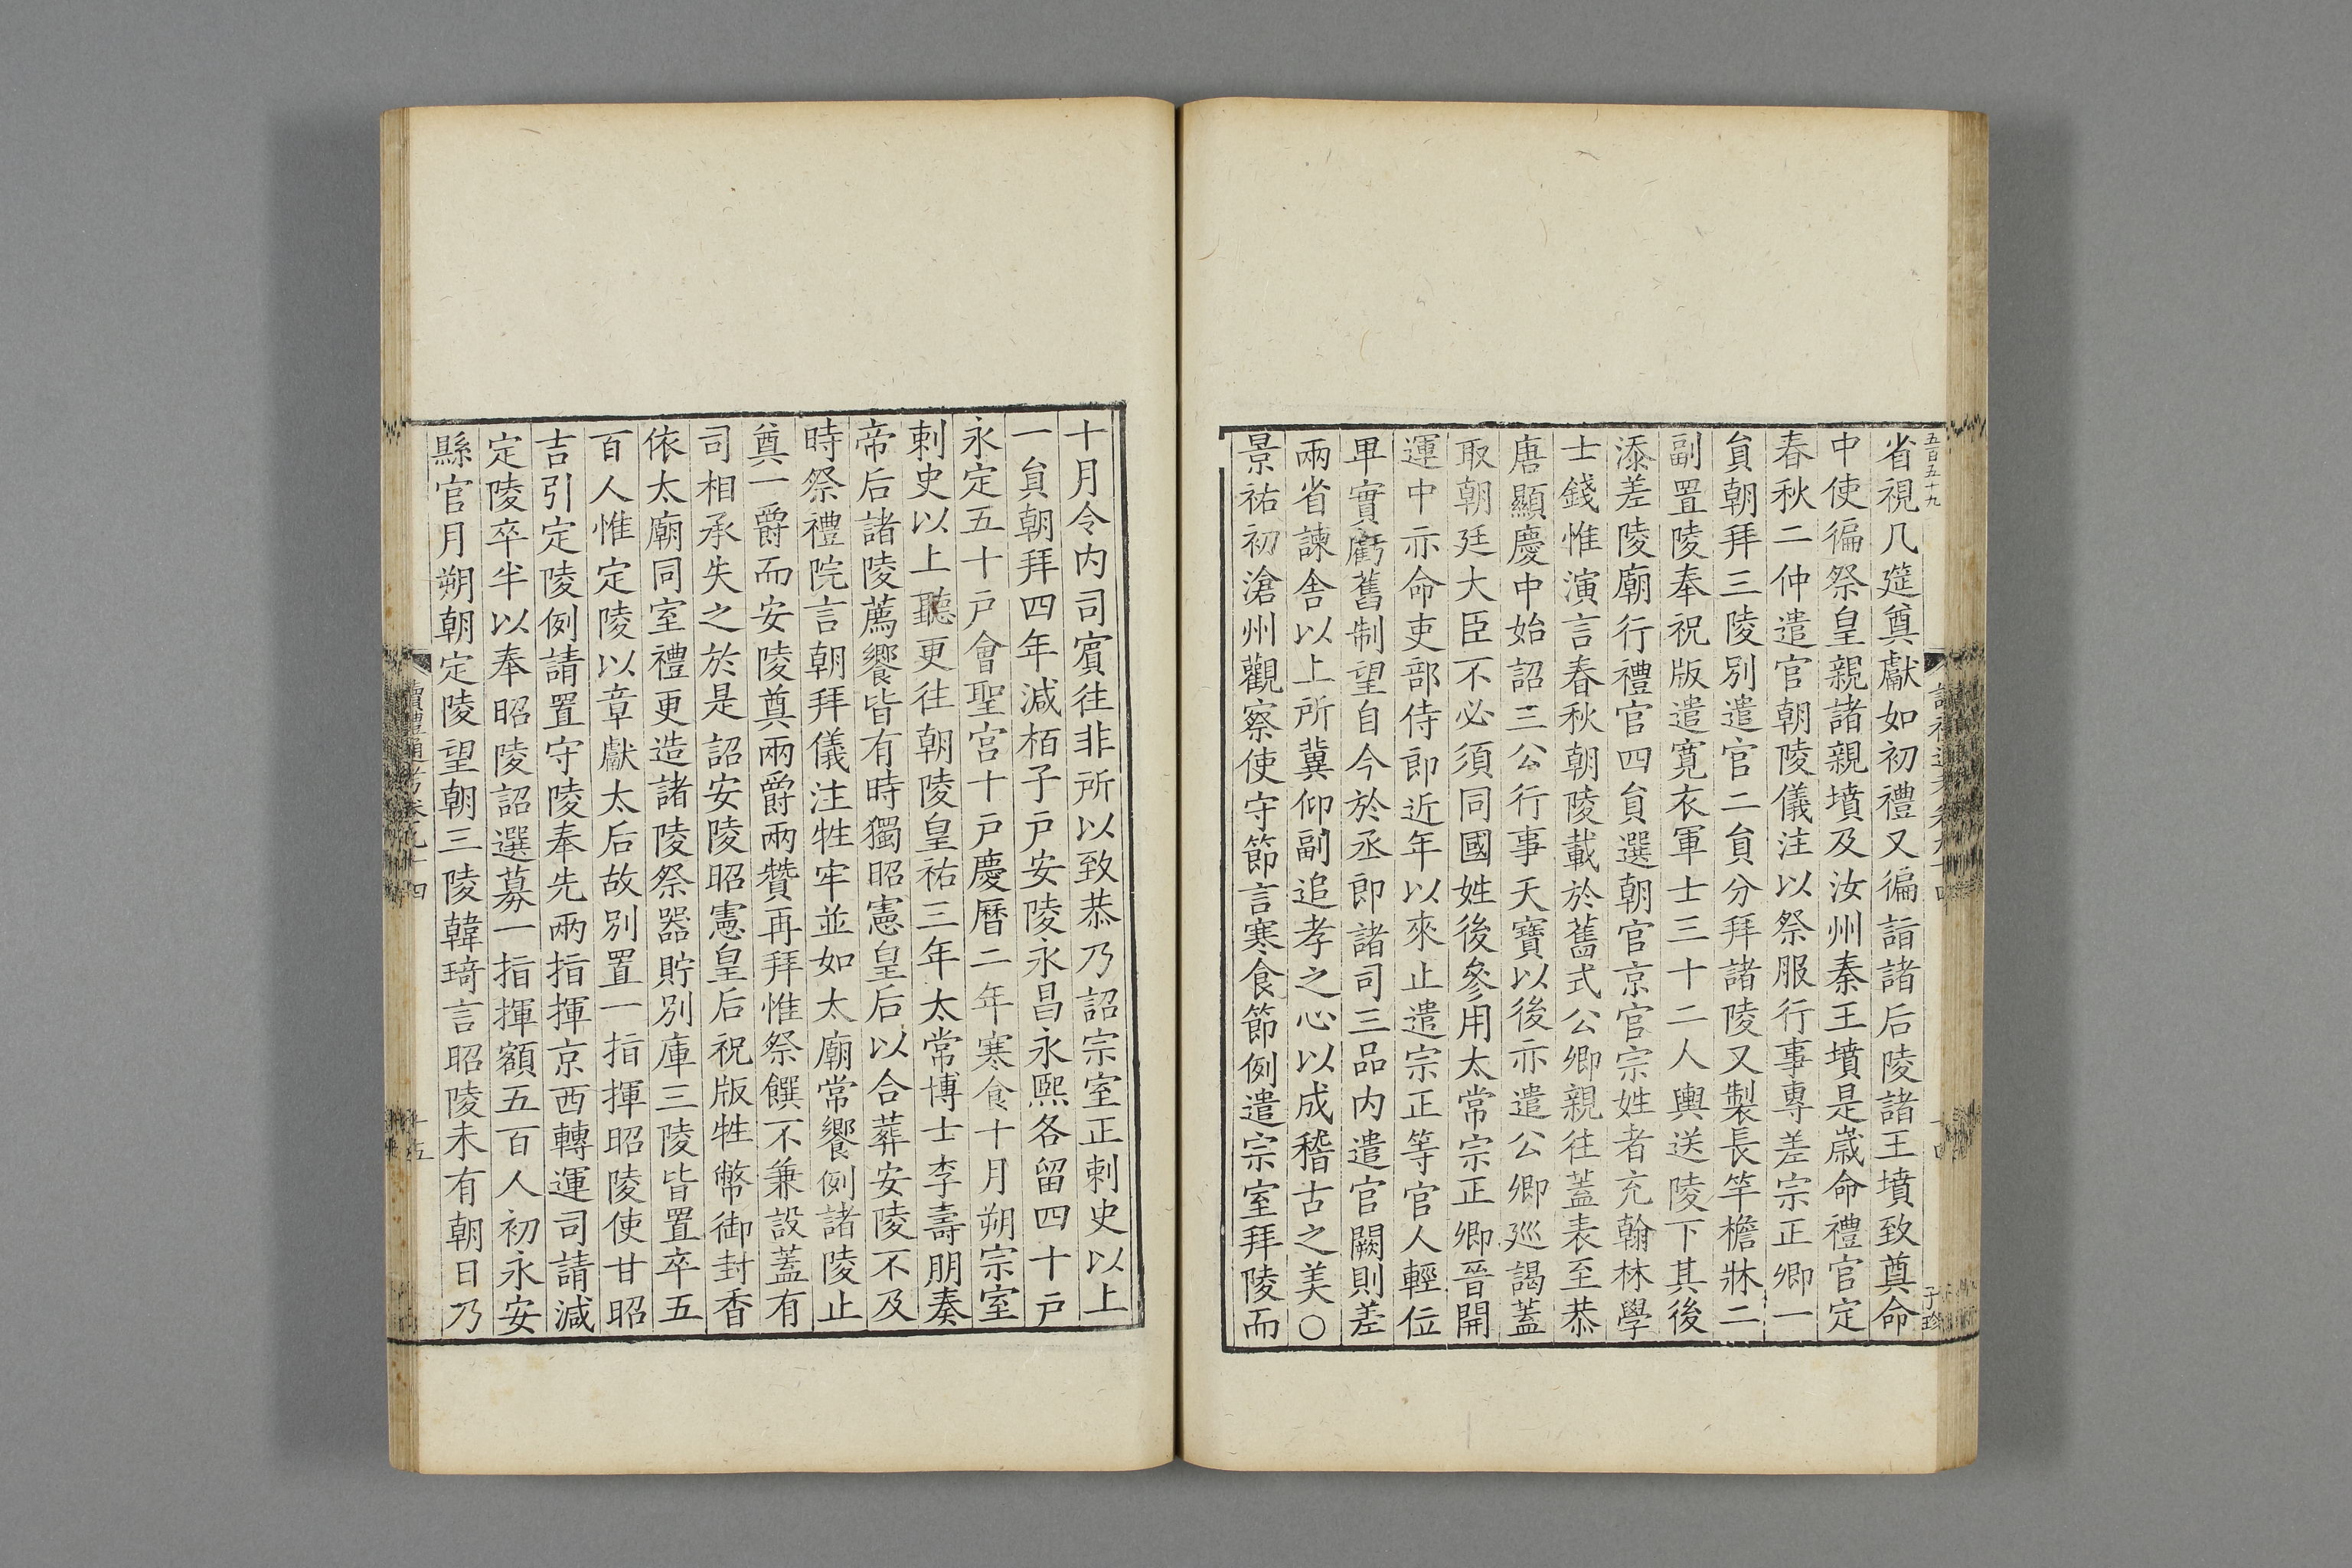 五百五十九
省視几筵奠獻如初禮又徧詣諸后陵諸王墳致奠命
中使徧祭皇親諸親墳及汝州秦王墳是歲命禮官定
春秋二仲遣官朝陵儀注以祭服行事專差宗正卿一
貟朝拜三陵別遣官二貟分拜諸陵又製長竿檐牀二
副置陵奉祝版遣寬衣軍士三十二人輿送陵下其後
添差陵廟行禮官四貟選朝官京官宗姓者充翰林學
士錢惟演言春秋朝陵載於舊式公卿親往蓋表至恭
唐顯慶中始詔三公行事天寶以後亦遣公卿巡謁蓋
取朝廷大臣不必須同國姓後參用太常宗正卿晉開
運中亦命吏部侍郎近年以來止遣宗正等官人輕位
卑實虧舊制望自今於丞郎諸司三品內遣官闕則差
兩省諫舍以上所冀仰副追孝之心以成稽古之美○
景祐初滄州觀察使守節言寒食節例遣宗室拜陵而
十月令内司賓往非所以致恭乃詔宗室正刺史以上
一貟朝拜四年減栢子戸安陵永昌永熙各留四十戸
永定五十戸會聖宮十戸慶曆二年寒食十月朔宗室
刺史以上聽更往朝陵皇祐三年太常博士李壽朋奏
帝后諸陵薦饗皆有時獨昭憲皇后以合葬安陵不及
時祭禮院言朝拜儀注牲牢並如太廟常饗例諸陵止
奠一爵而安陵奠兩爵兩贊再拜惟祭饌不兼設蓋有
司相承失之於是詔安陵昭憲皇后祝版牲幣御封香
依太廟同室禮更造諸陵祭器貯別庫三陵皆置卒五
百人惟定陵以章獻太后故別置一指揮昭陵使甘昭
吉引定陵例請置守陵奉先兩指揮京西轉運司請減
定陵卒半以奉昭陵詔選募一指揮額五百人初永安
縣官月朔朝定陵望朝三陵韓琦言昭陵未有朝日乃
讀禮通考卷九十四
十五